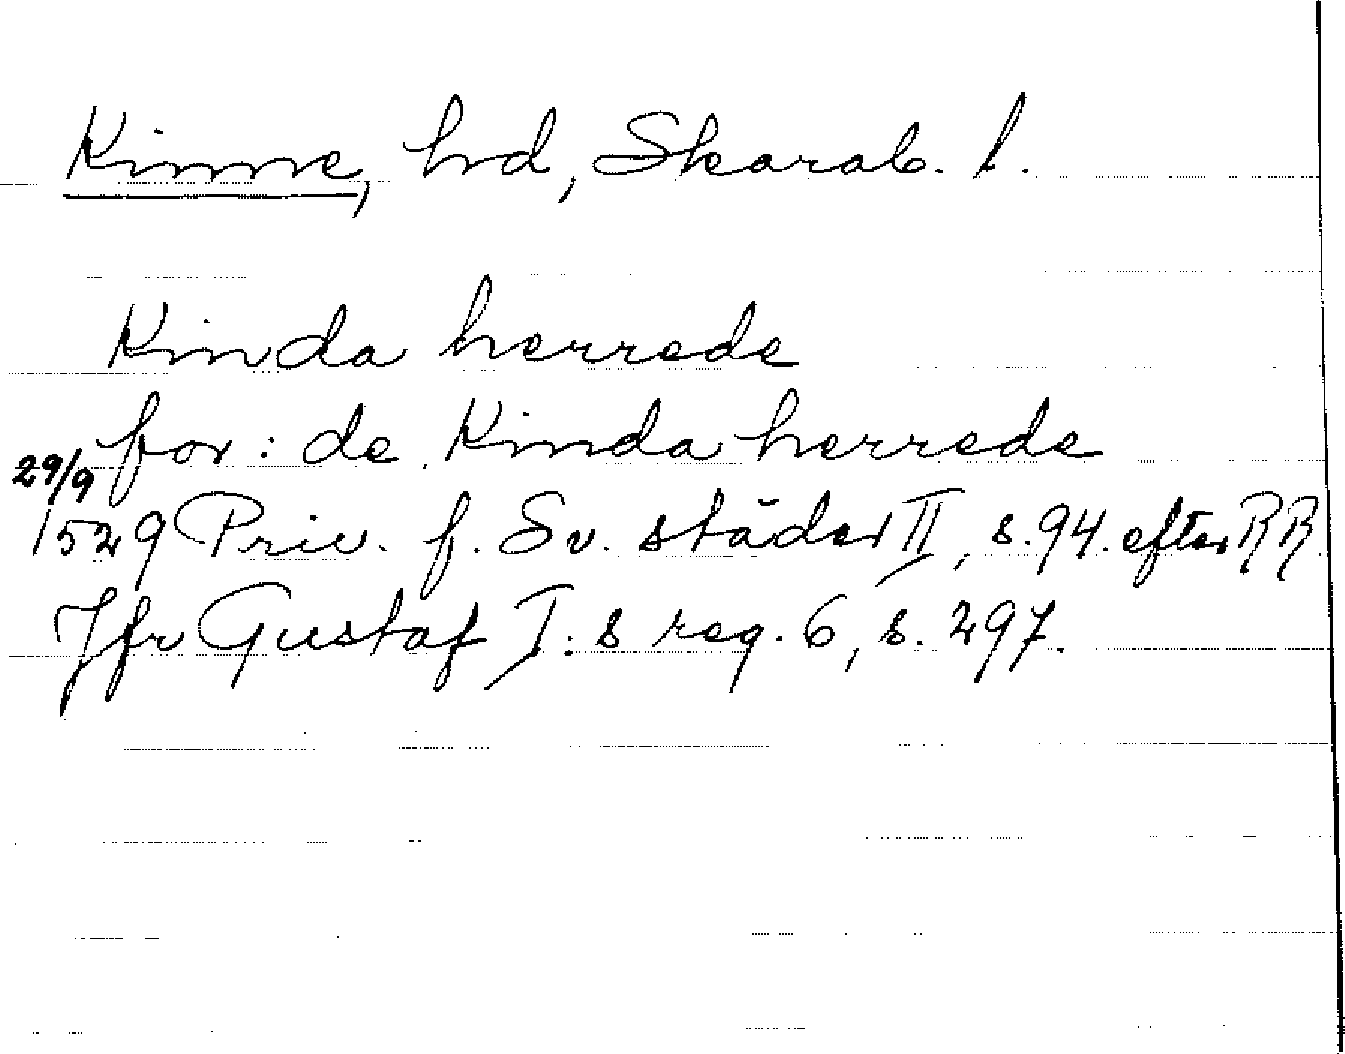 Kinne, hd, Skarab. l.
Kinda herrede
for: de Kinda herrede
29/9
1529 Priv. f. Sv. städer II, s. 94. efter RR.
Jfr Gustaf I:s reg. 6, s. 297.